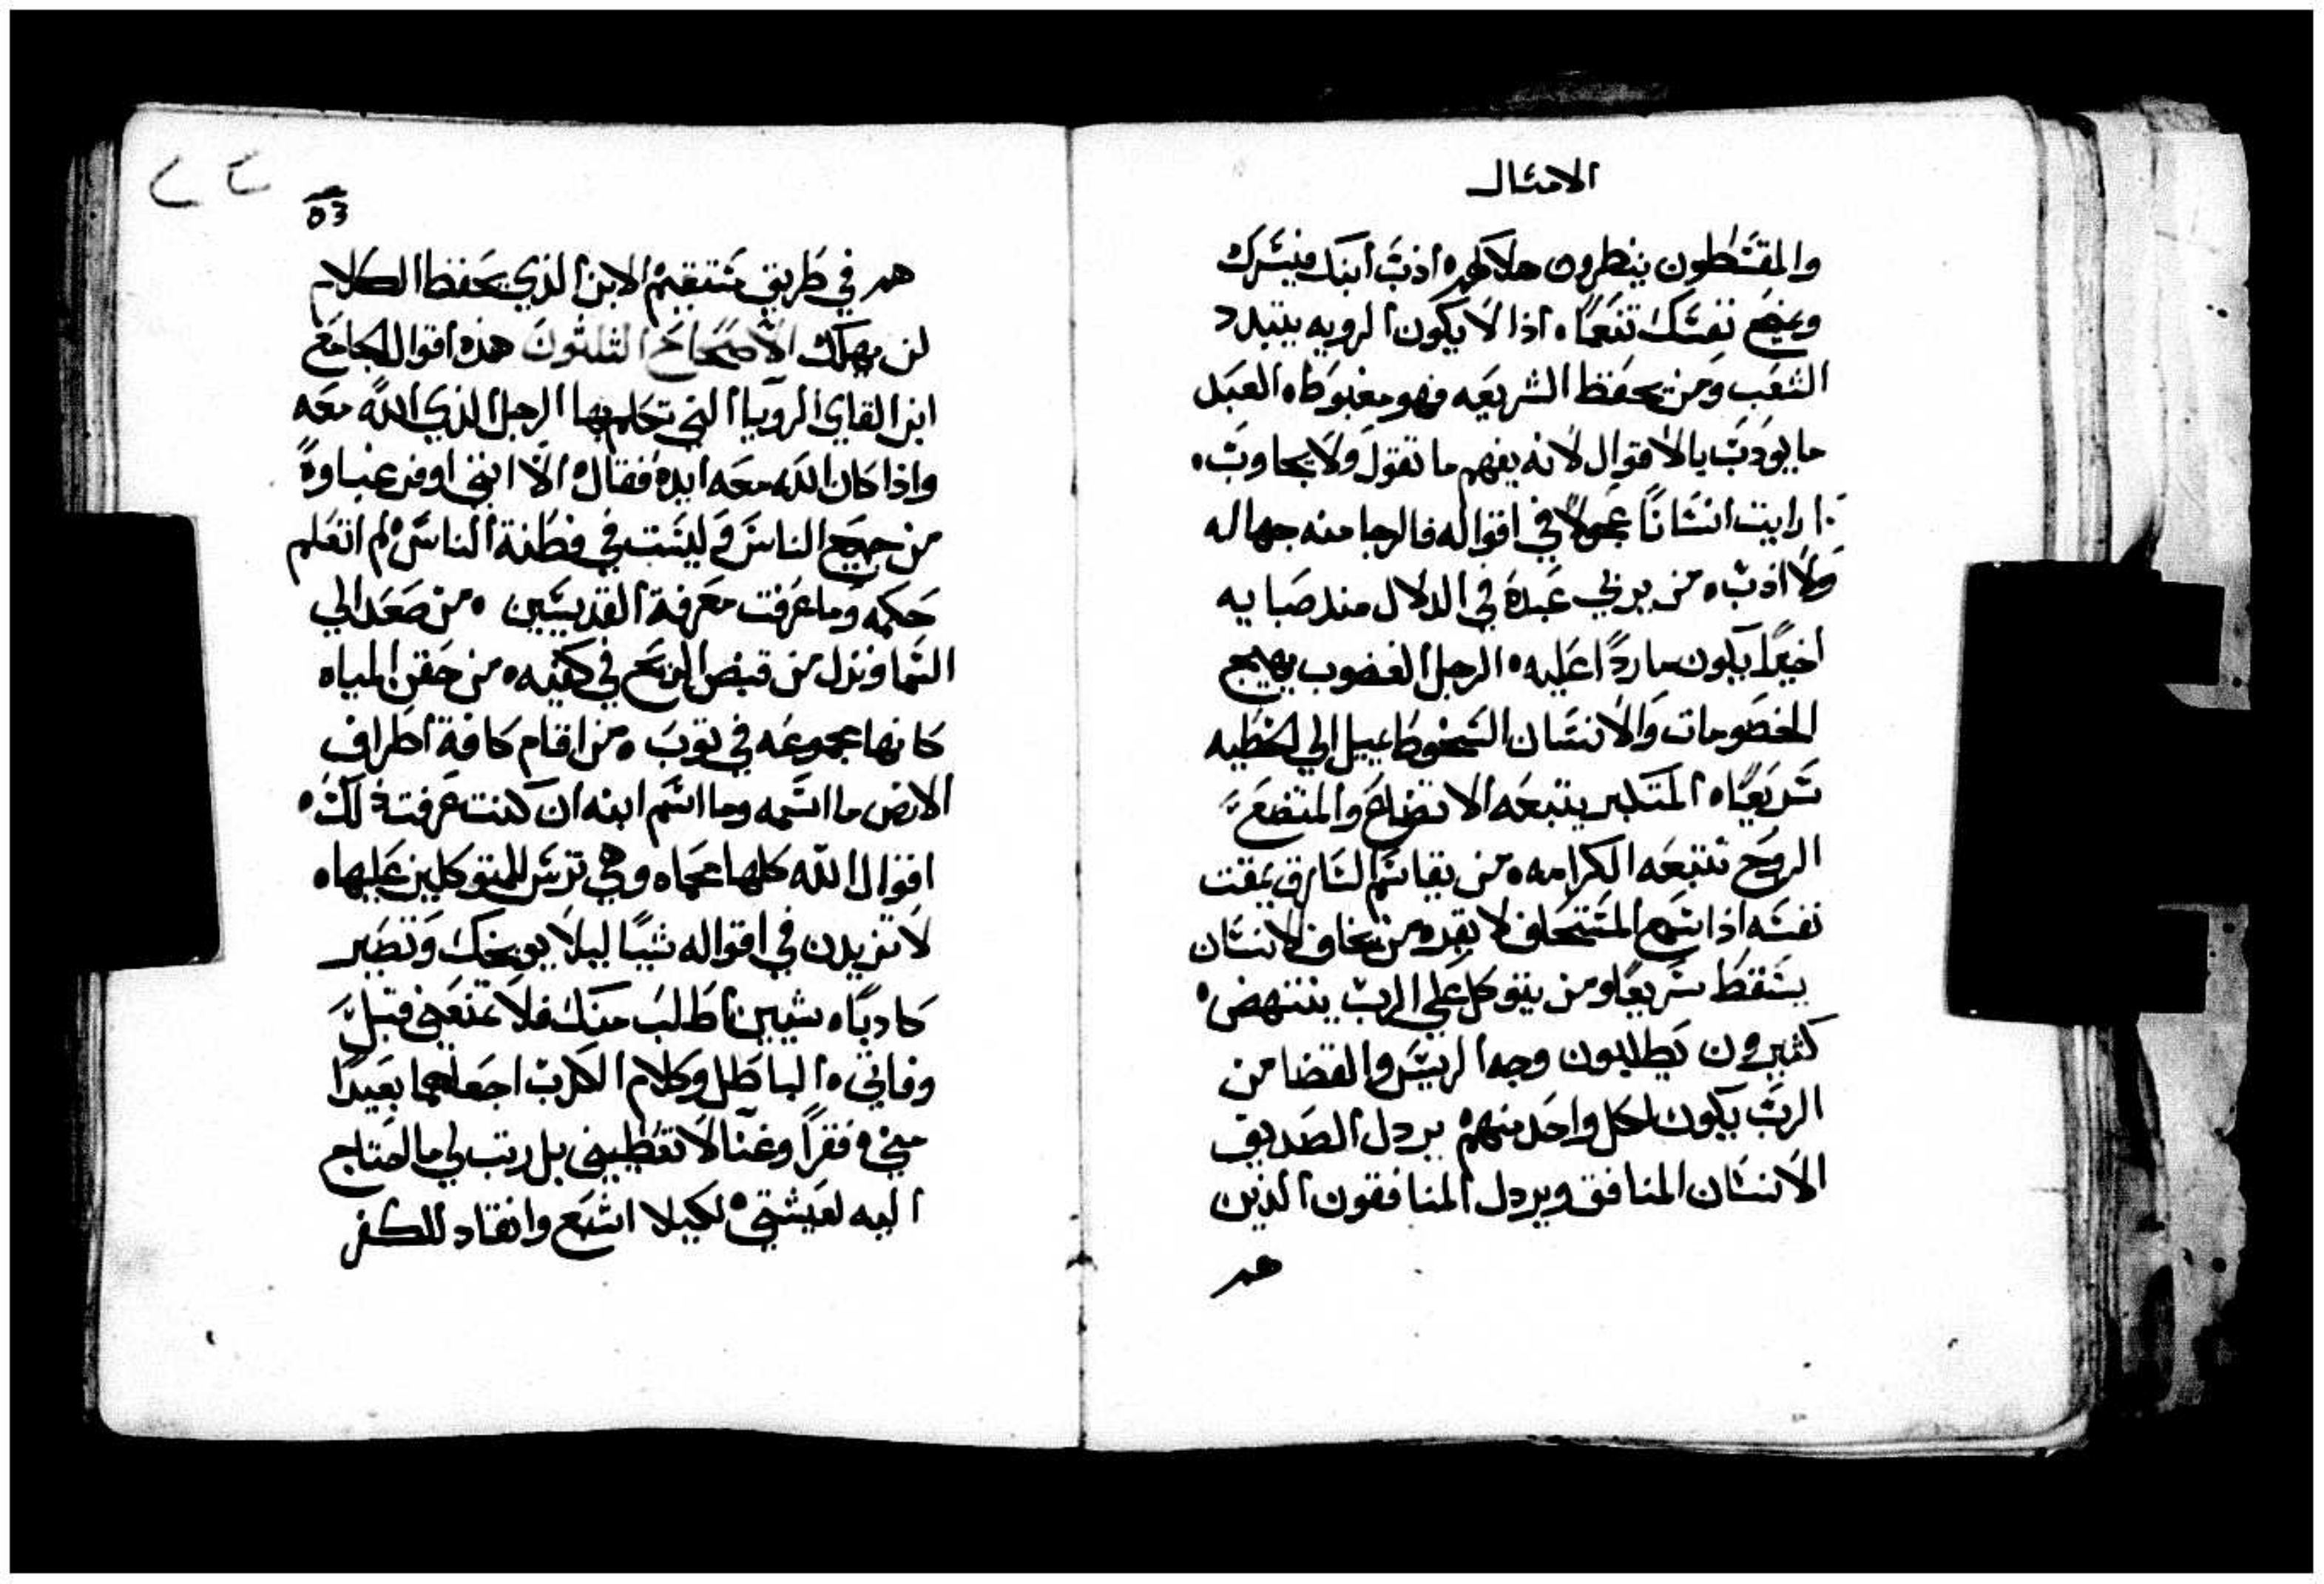 الامثال
والمقسطون ينظرون هلاكهم ادب ابنك فيسرك
ويمنح نفسك تنعماً اذا لا يكون الرويه يتبدد
الشعب ومن يحفظ الشريعه فهو مغبوط العبد
ما يودب بالاقوال لانه يفهم ما تقول ولا يجاوب
رايت انساناً عجولاً في اقواله فالرجا منه جهاله
ولا ادب من يربي عبده في الدلال منذ صبايه
اخيراً يكون مارداً عليه الرجل الغضوب يهيج
الخصومات والانسان السخوط يميل الي الخطيه
سريعاً المتكبر يتبعه الاتضاع والمتضع
الروح تتبعه الكرامه من يقاسم السارق يمقت
نفسه اذا سمع المستحلف لا يقر من يخاف الانسان
يسقط سريعاً ومن يتوكل علي الرب ينتهض
كثيرون يطلبون وجه الريس والقضا من
الرب يكون لكل واحد منهم يردل الصديق
الانسان المنافق ويردل المنافقون الذين
هم
53
هم في طريق مستقيم الابن الذي يحفظ الكلام
لن يهلك الاصحاح الثلثون هذه اقوال الجامع
ابن القاي الرويا التي تكلم بها الرجل الذي الله معه
واذا كان الله معه ايده فقال الا انني اوفر غباوةً
من جميع الناس وليست في فطنة الناس لم اتعلم
حكمه وما عرفت معرفة القديسين من صعد الي
السما ونزل من قبض الريح في كفيه من حقن المياه
كانها مجموعه في ثوب من اقام كافة اطراف
الارض ما اسمه وما اسم ابنه ان كنت عرفت ذلك
اقوال الله كلها محماه وهي ترس للمتوكلين عليها
لا تزيدن في اقواله شياً ليلا يوبخك وتصير
كادباً شيين اطلب منك فلا تمنعني قبل
وفاتي الباطل وكلام الكدب اجعلهما بعيداً
مني فقراً وغناً لا تعطيني بل رتب لي ما احتاج
اليه لعيشتي لكيلا اشبع وانقاد للكفر